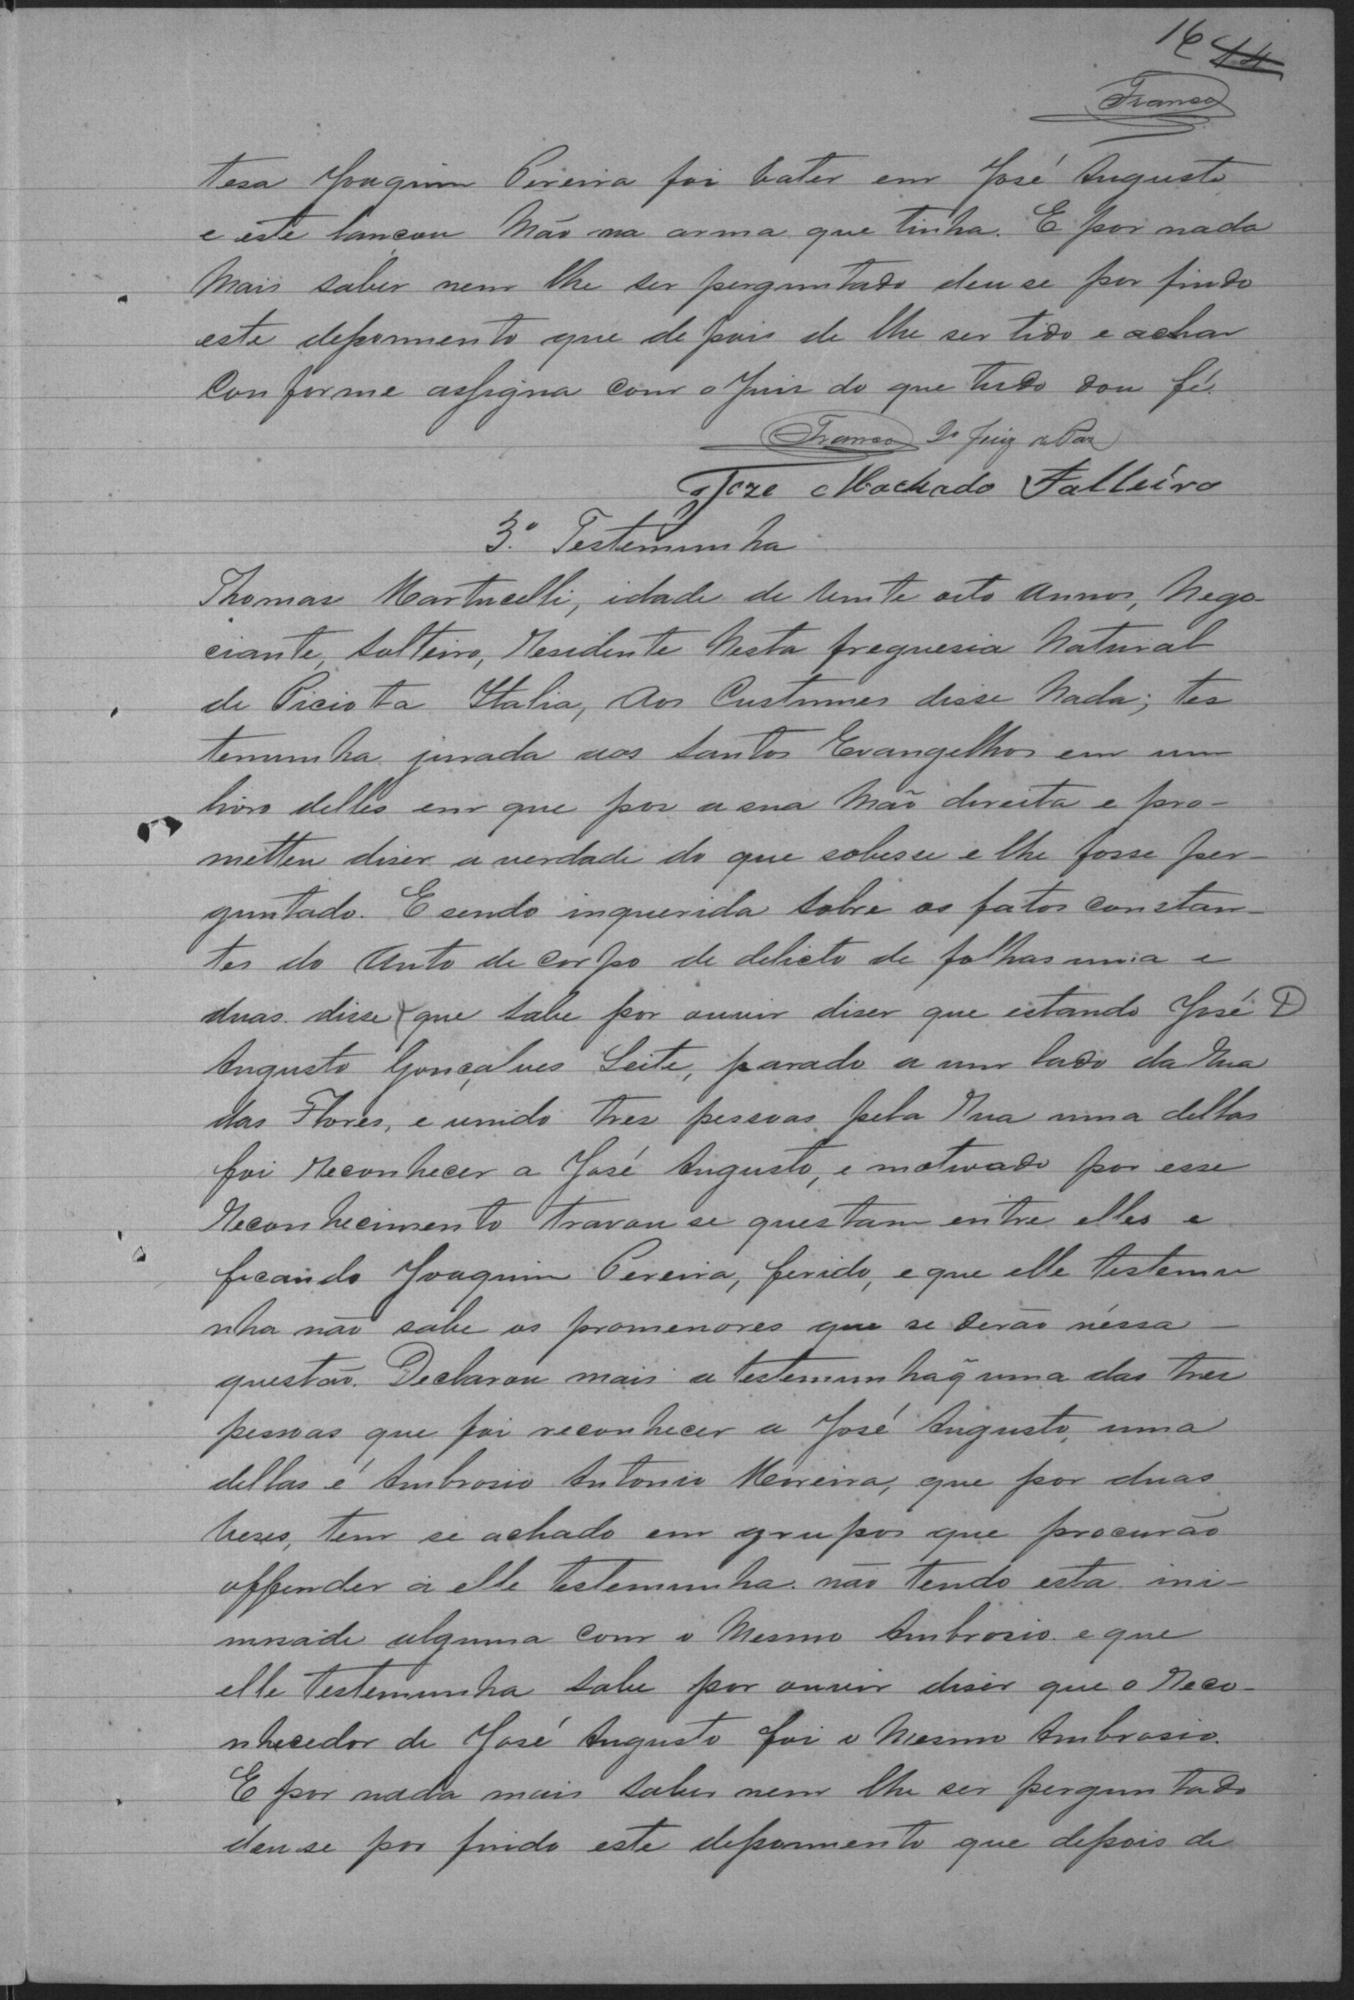 16 44
Franco
tesa Joaquim Pereira foi bater em José Augusto
e este lançou Mão na arma que tinha. E por nada
Mais saber nem lhe ser perguntado deu se por findo
este depoimento que de pois de lhe ser lido e achar
Conforme assigna com o Juiz do que tudo dou fé.
Franco 2º Juiz de Paz
Joze Machado Falleiro
3.º Testemunha
Thomas Martucelli, idade de vinte oito annos, Nego-
ciante, Solteiro, Residente Nesta freguesia Natural
de Piciota Italia, Aos Custumes disse Nada; tes
temunha jurada aos Santos Evangelhos em um
livro delles em que poz a sua Mão direita e pro-
metteu diser a verdade do que sobesse e lhe fosse per-
guntado. E sendo inquerida sobre os fatos constan-
tes do Auto de corpo de delicto de folhas uma e
duas disse que sabe por ouvir diser que estando José
Augusto Gonçalves Leite, parado a um lado da Rua
das Flores, e unido tres pessoas pela Rua uma dellas
foi Reconhecer a José Augusto, e motivado por esse
Reconhecimento travou se questam entre elles e
ficando Joaquim Pereira, ferido, e que elle testemu
nha não sabe os promenores que se derão néssa -
questão. Declarou mais a testemunha q̃ uma das tres
pessoas que foi reconhecer a José Augusto, uma
dellas é Ambrosio Antonio Moreira, que por duas
vezes, tem se achado em grupos que procurão
offender a elle testemunha. não tendo esta ini-
misade alguma com o Mesmo Ambrosio. e que
elle testemunha sabe por ouvir diser que o Reco-
nhecedor de José Augusto foi o Mesmo Ambrosio.
E por nada mais saber nem lhe ser perguntado
deu se por findo este depoimento que depois de